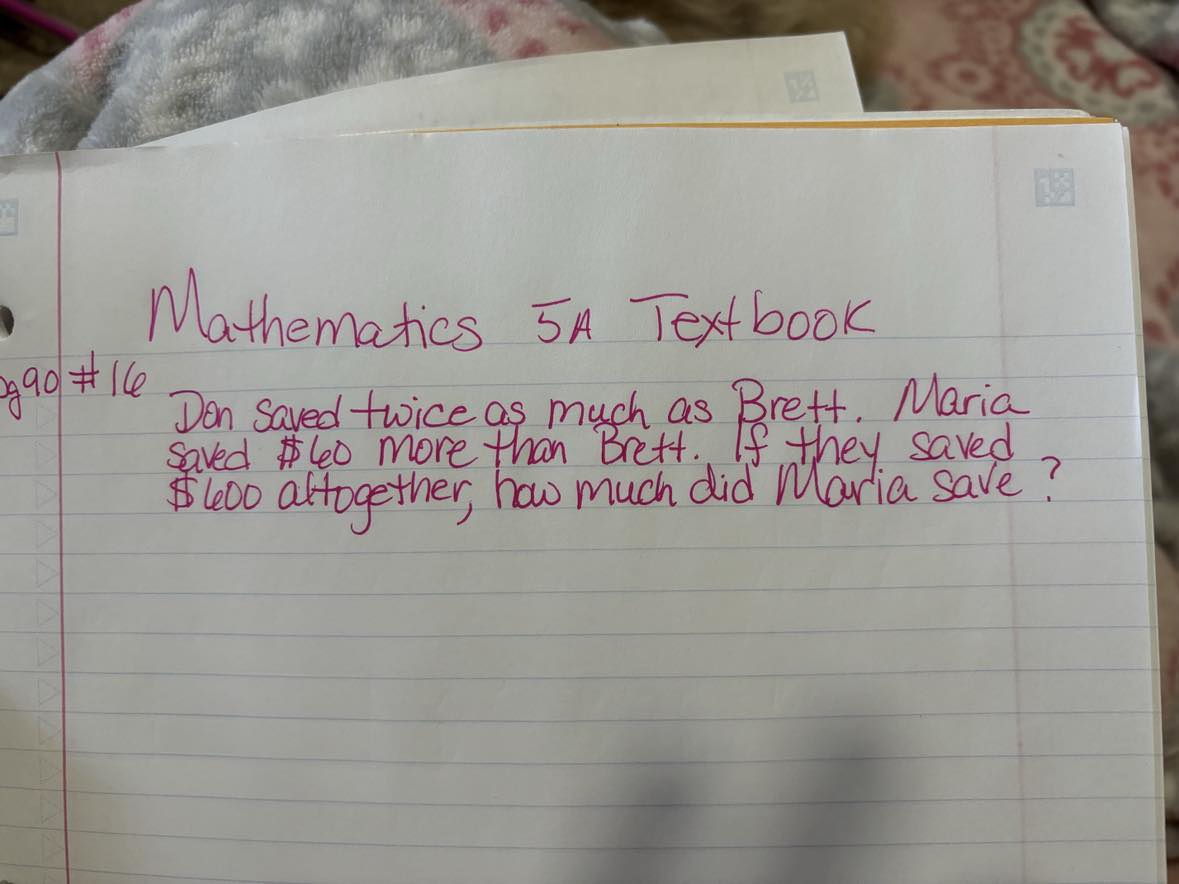 Mathematics 5A Textbook
pg90 #16
Don saved twice as much as Brett. Maria
saved $60 more than Brett. If they saved
$600 altogether, how much did Maria save?